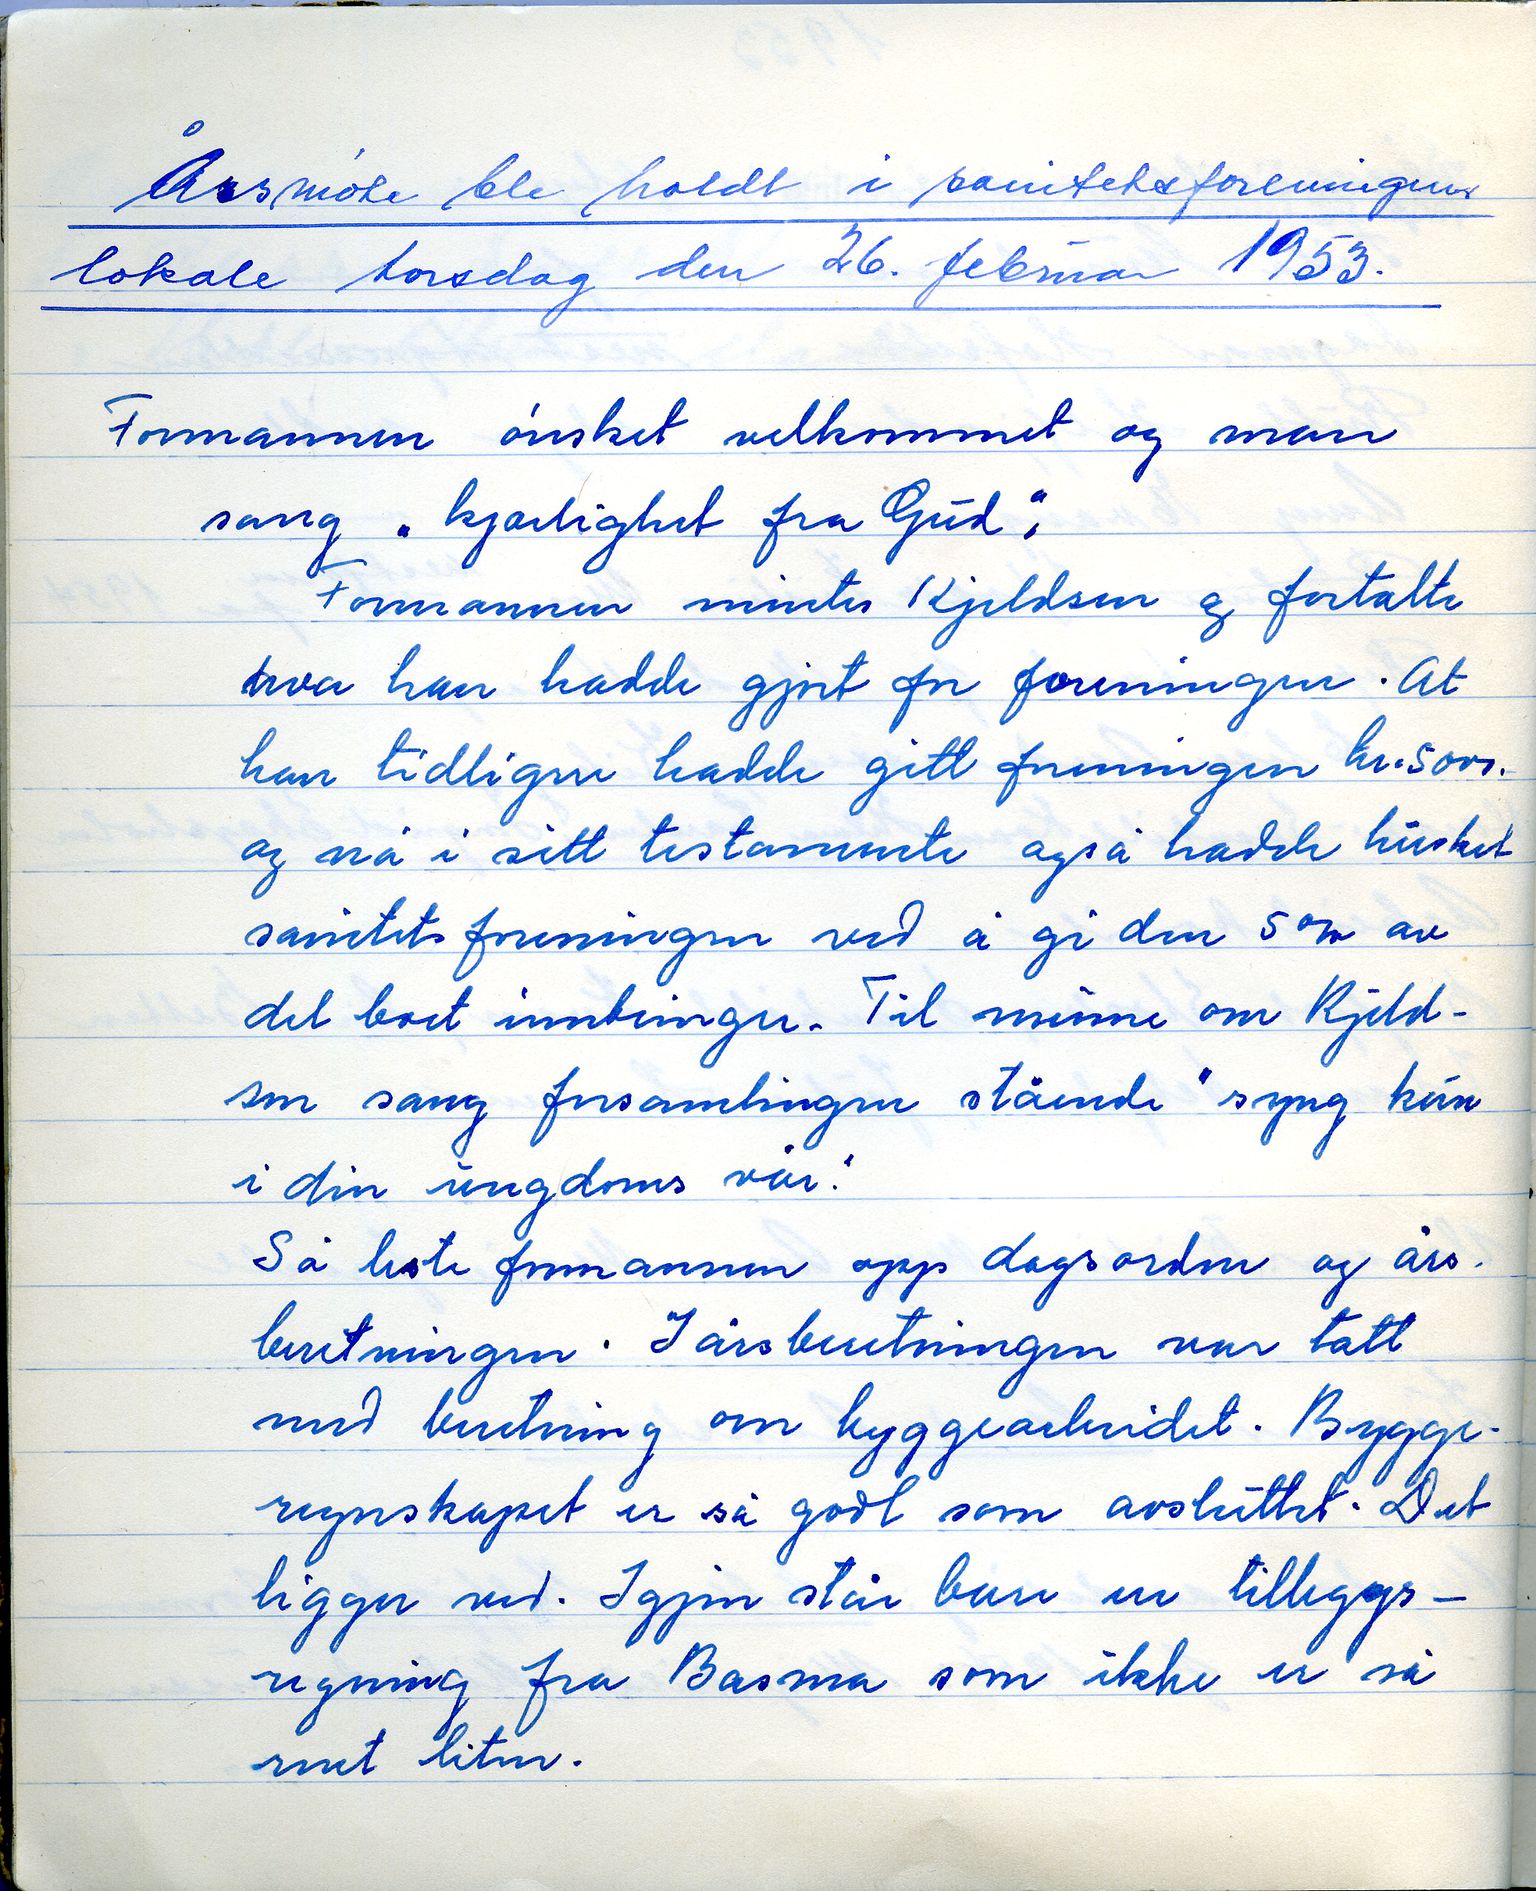 Årsmöte ble holdt i sanitetsforeningens
lokale torsdag den 26. februar 1953.
Formannen önsket velkommet og man
sang „kjærlighet fra Gud".
Formannen mintes Kjeldsen og fortalte
hva han hadde gjort for foreningen. At
han tidligere hadde gitt foreningen kr.
og nå i sitt testamente også hadde husket
sanitetsforeningen ved å gi den av
det boet innbringer. Til minne om Kjeld-
sen sang forsamlingen stående "syng kun
i din ungdoms vår."
Så leste formannen opp dagsorden og års-
beretningen. I årsberetningen var tatt
med beretning om byggearbeidet. Bygge-
regnskapet er så godt som avsluttet. Det
ligger ved. Igjen står bare en tilleggs-
regning fra Basma som ikke er så
rent liten.